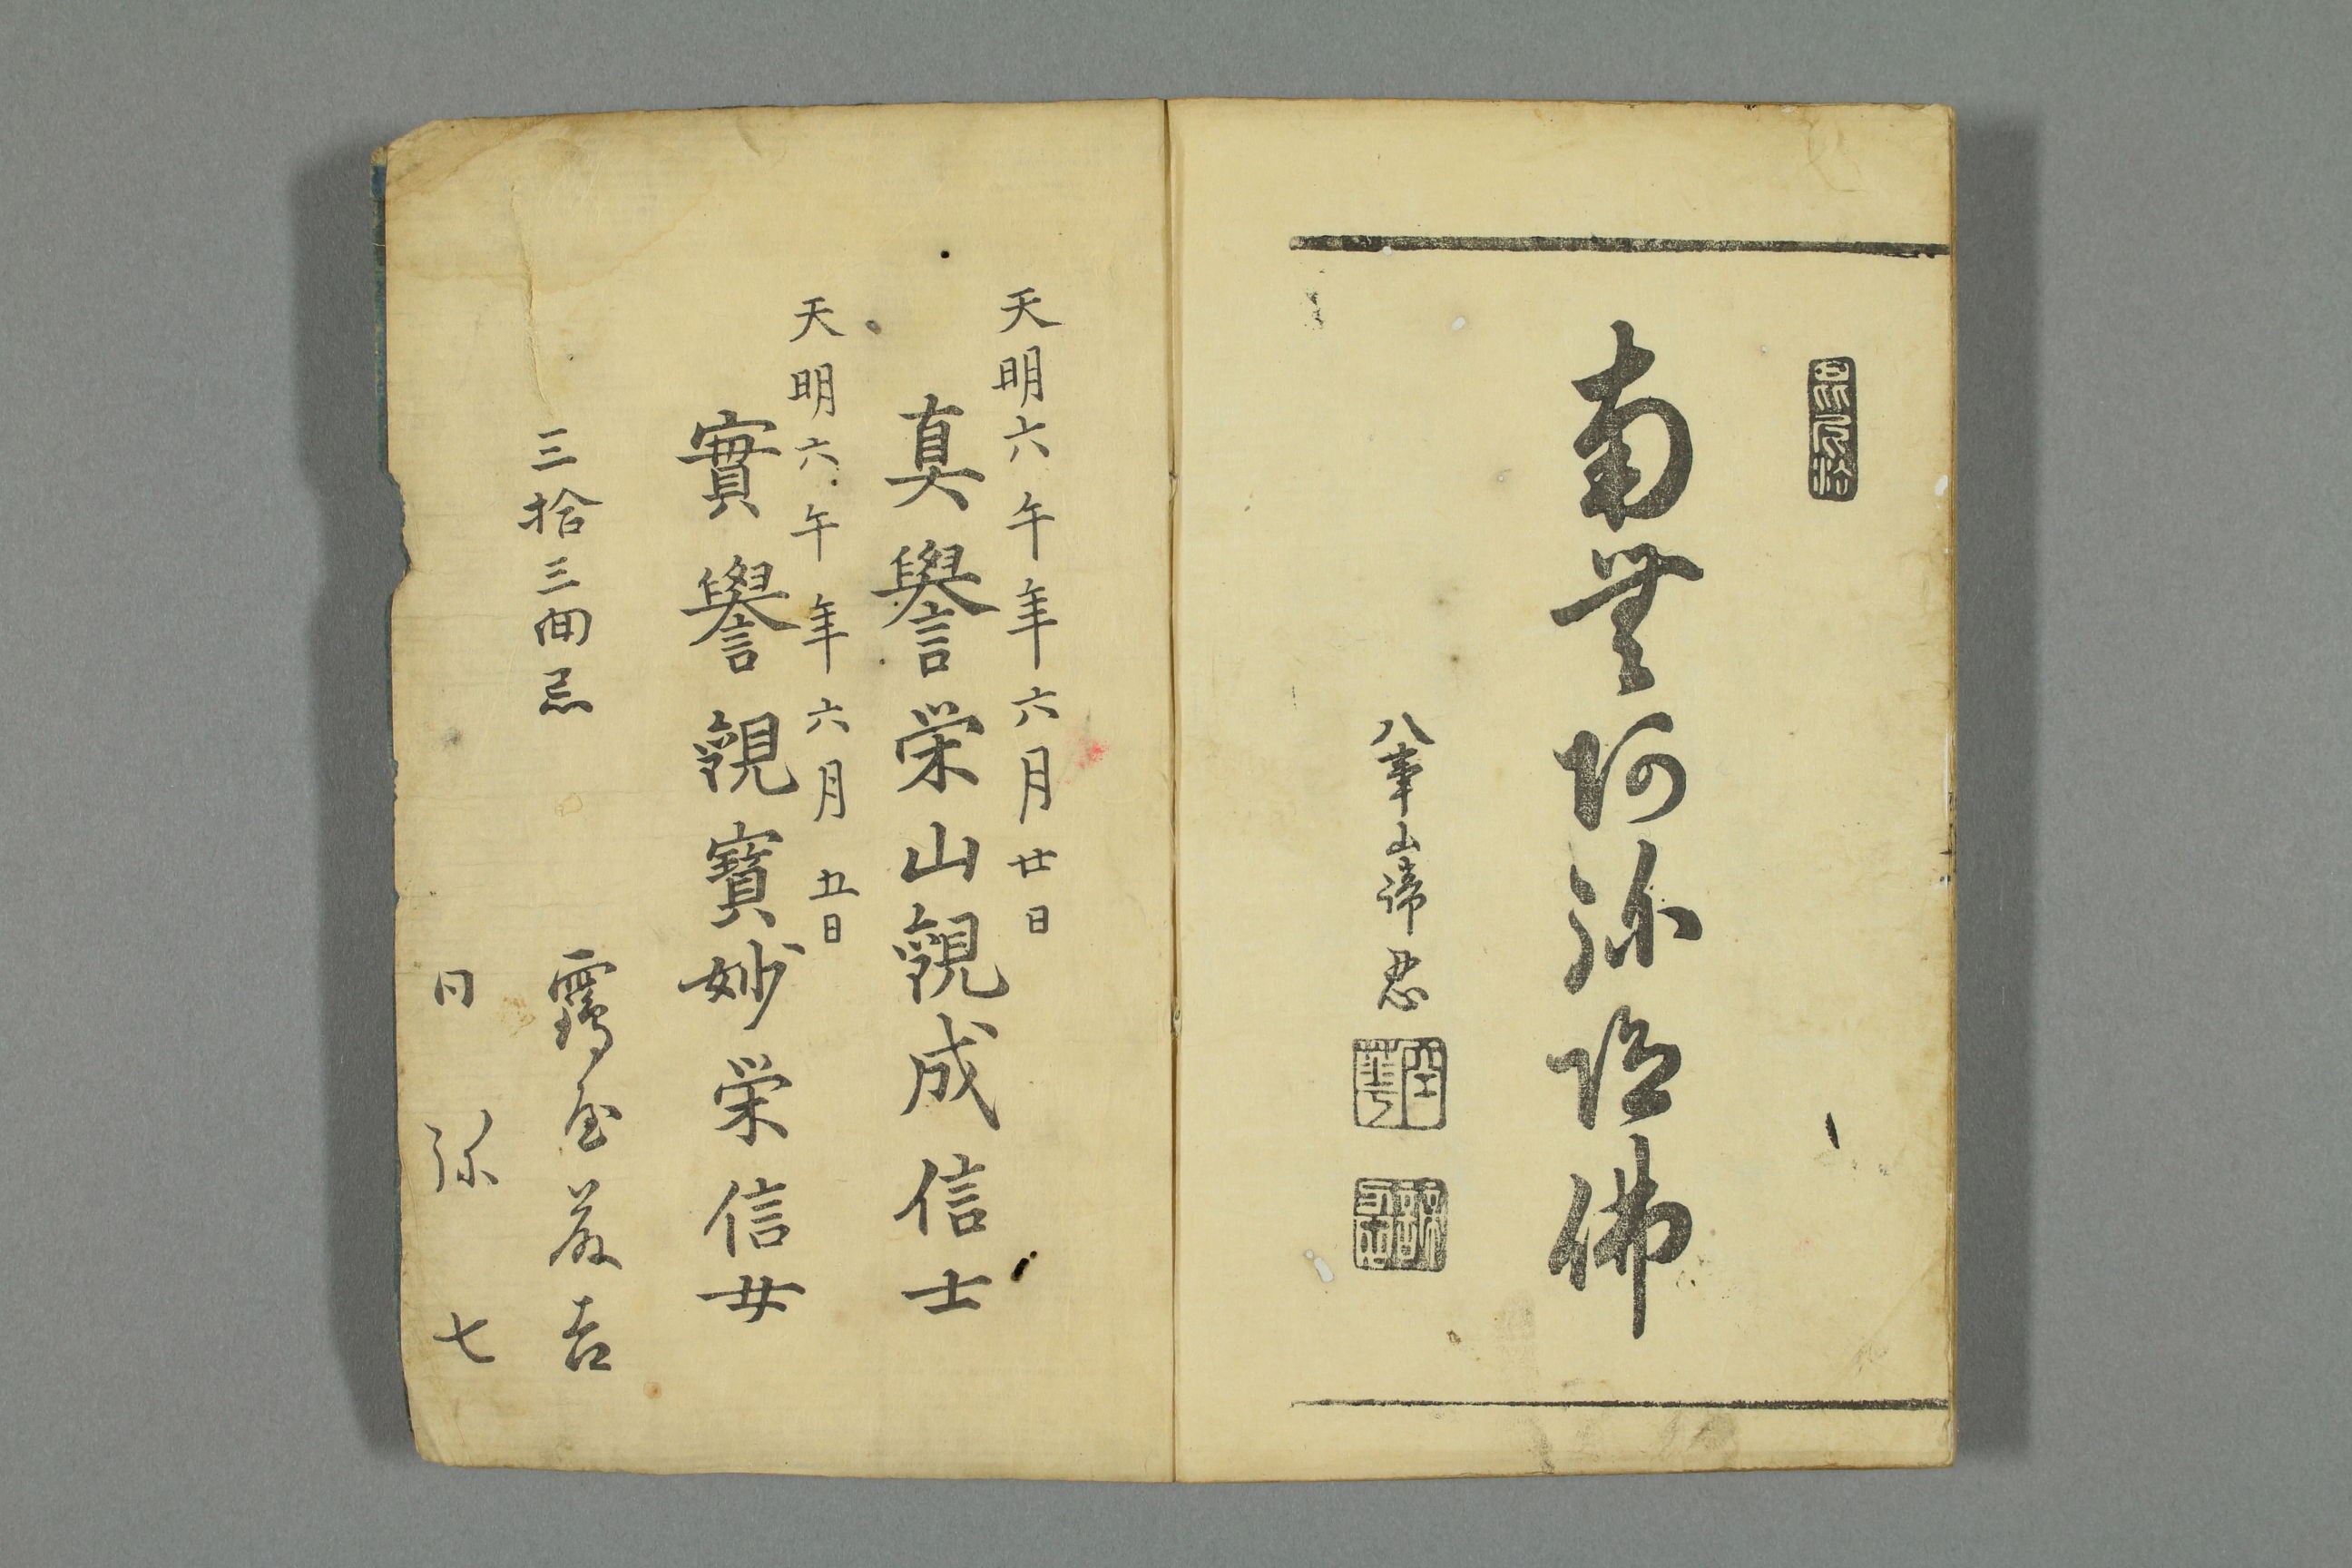 南無阿弥陀佛
八事山諦忍
天明六午年六月廿日
真譽栄山観成信士
天明六午年六月五日
實譽観寶妙栄信女
三拾三回忌
吉
同弥七